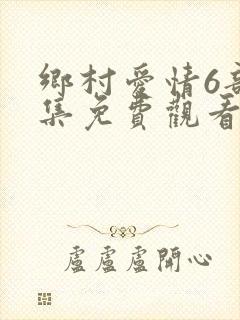 鄉村愛情6
集免費觀看
盧盧盧開心